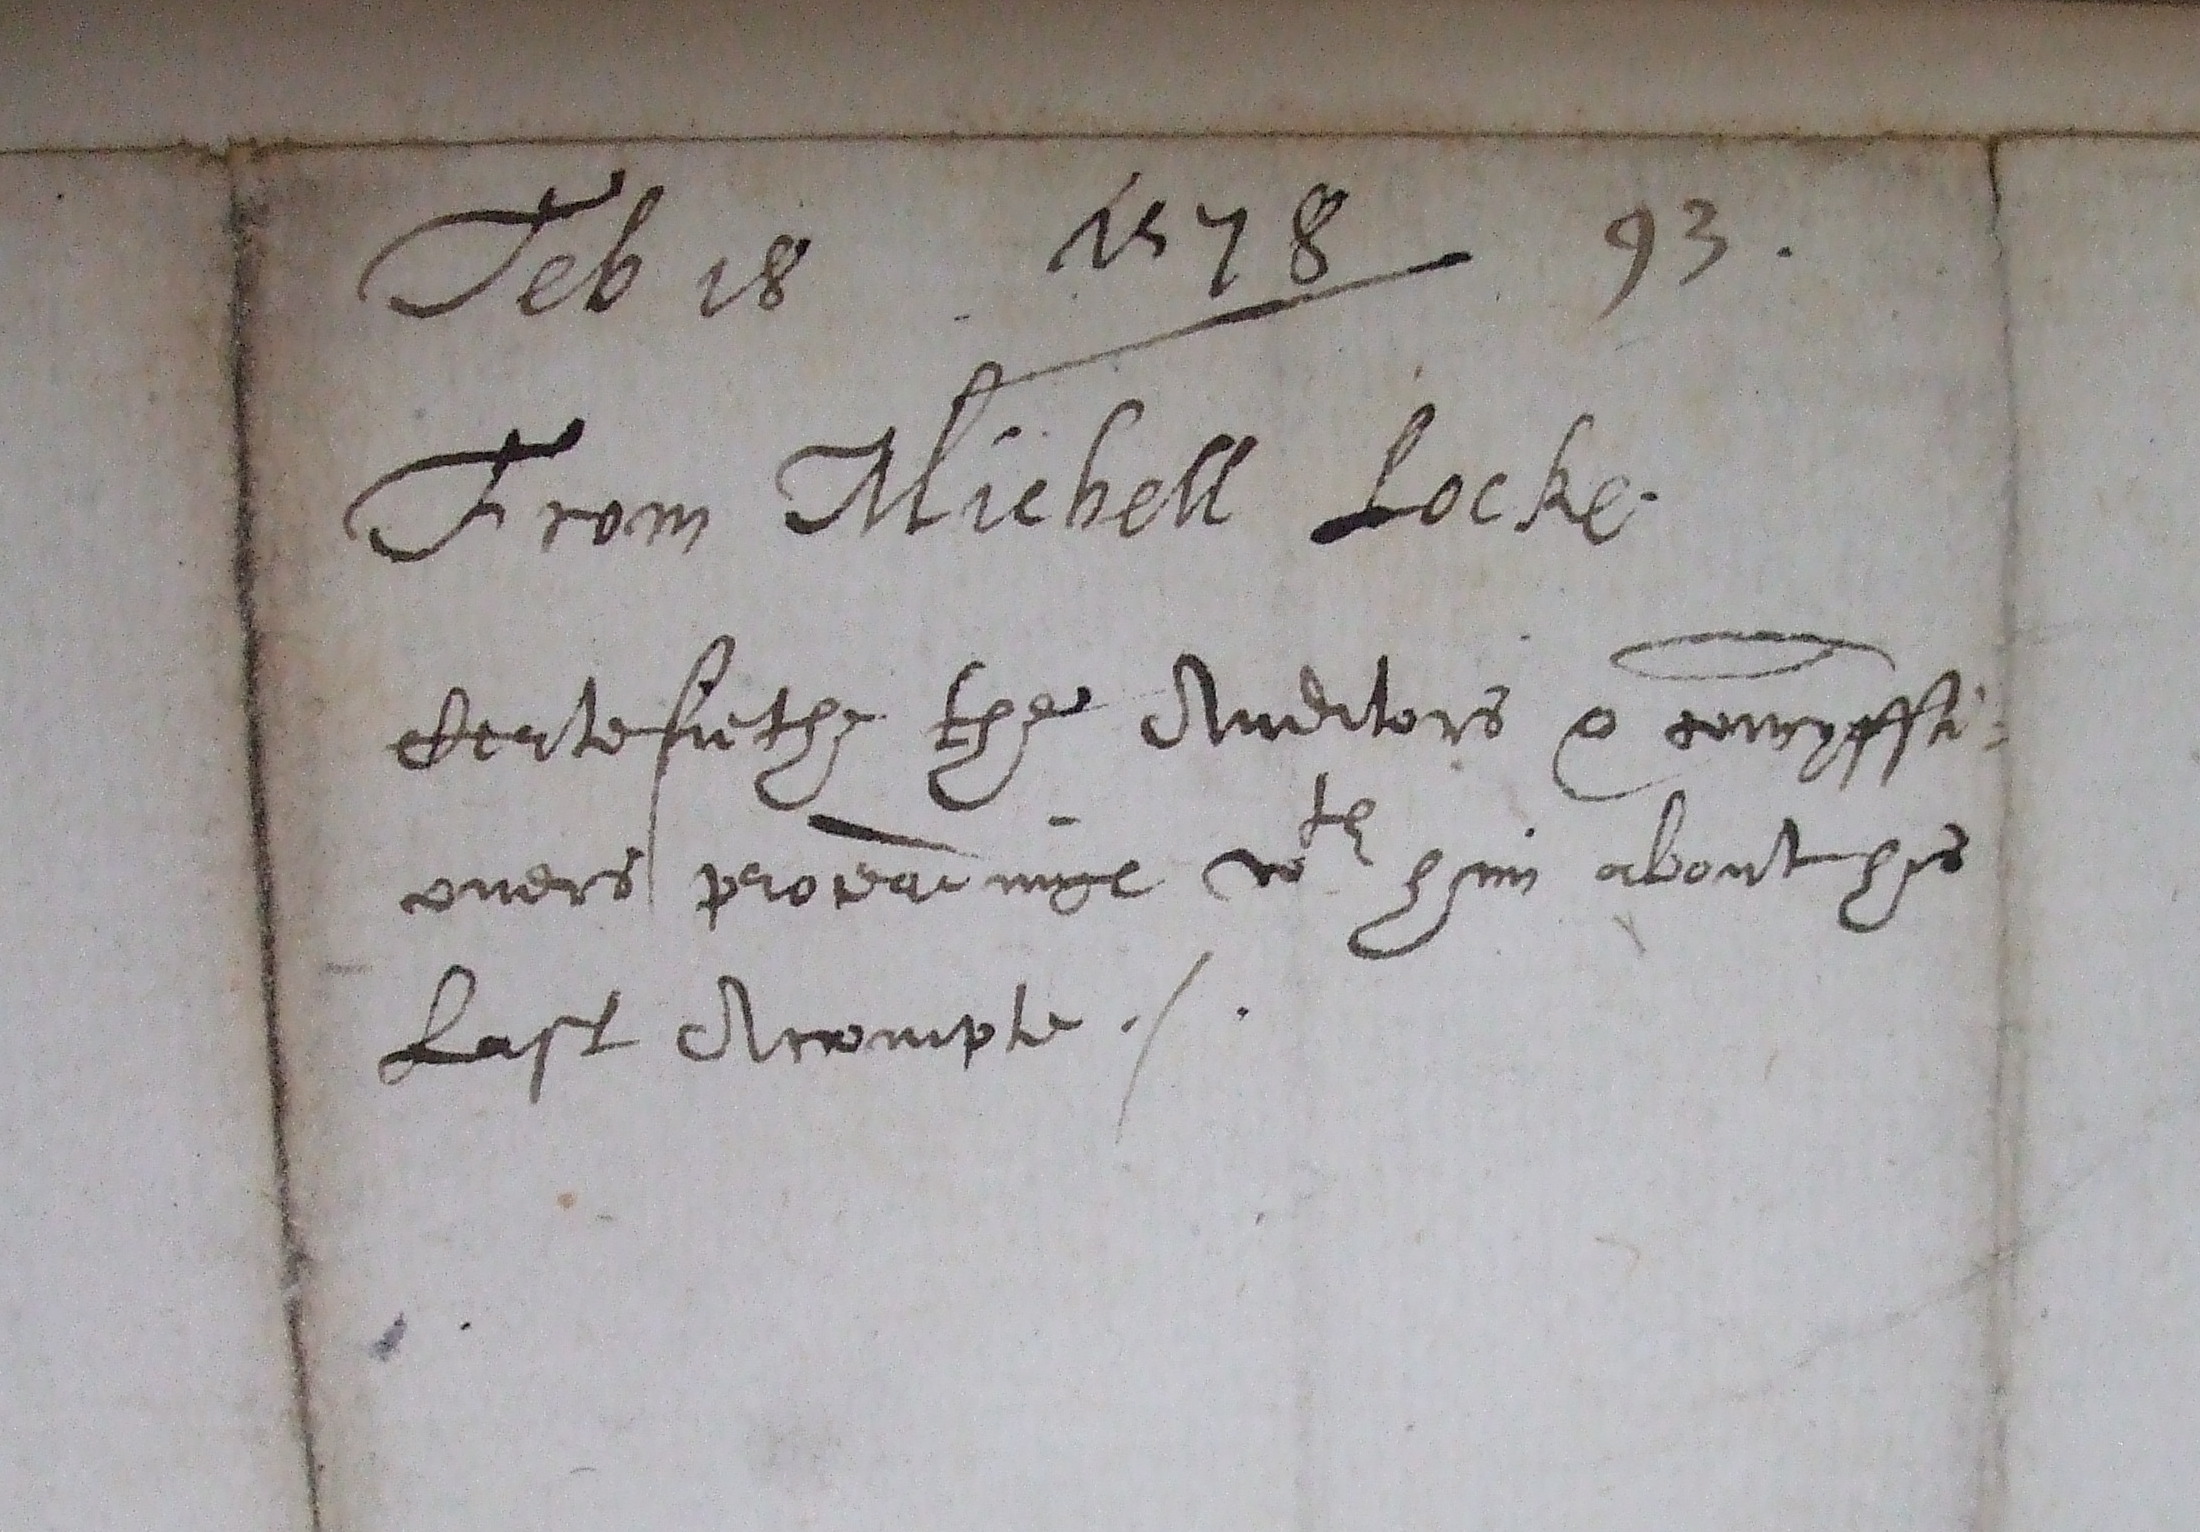 Feb 18 1578 93.
From Michell Locke.
Certefiethe the Auditors & comyssi=
oners proceadinge wth hym about hys
Last Accompte ./.